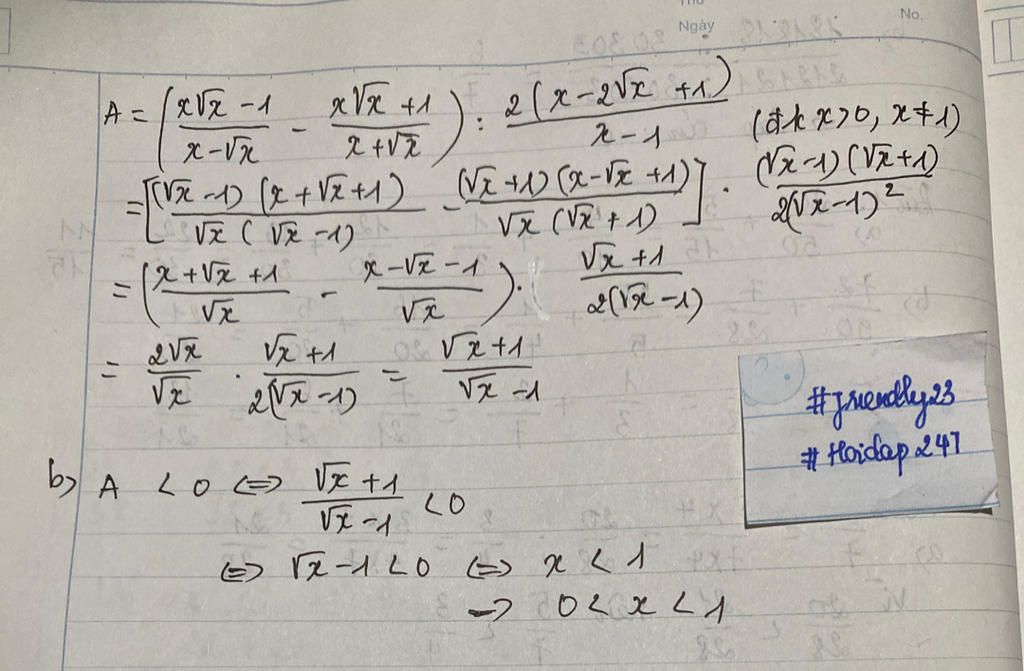 Ngày
No.
A = (\frac{x\sqrt{x} - 1}{x - \sqrt{x}} - \frac{x\sqrt{x} + 1}{x + \sqrt{x}}) : \frac{2(x - 2\sqrt{x} + 1)}{x - 1} (đk x > 0, x ≠ 1)
= [\frac{(\sqrt{x} - 1)(x + \sqrt{x} + 1)}{\sqrt{x}(\sqrt{x} - 1)} - \frac{(\sqrt{x} + 1)(x - \sqrt{x} + 1)}{\sqrt{x}(\sqrt{x} + 1)}] . \frac{(\sqrt{x} - 1)(\sqrt{x} + 1)}{2(\sqrt{x} - 1)^2}
= (\frac{x + \sqrt{x} + 1}{\sqrt{x}} - \frac{x - \sqrt{x} - 1}{\sqrt{x}}) . \frac{\sqrt{x} + 1}{2(\sqrt{x} - 1)}
= \frac{2\sqrt{x}}{\sqrt{x}} . \frac{\sqrt{x} + 1}{2(\sqrt{x} - 1)} = \frac{\sqrt{x} + 1}{\sqrt{x} - 1}
#friendly23
#Hoidap247
b) A < 0 ⇔ \frac{\sqrt{x} + 1}{\sqrt{x} - 1} < 0
⇔ \sqrt{x} - 1 < 0 ⇔ x < 1
→ 0 < x < 1